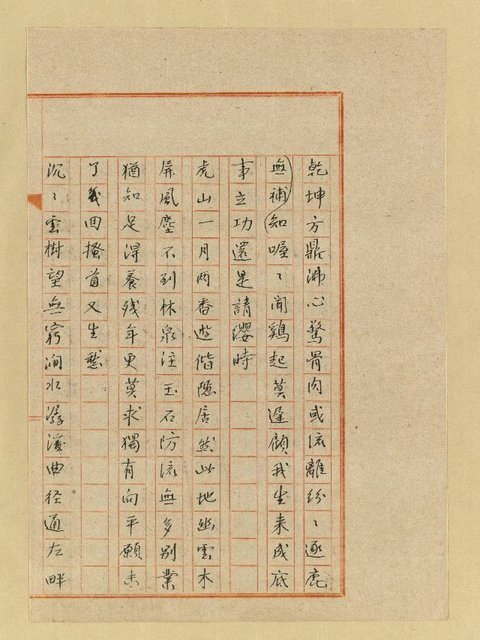 乾坤方鼎沸心驚骨肉或流離紛〻逐鹿
無補知喔〻聞鷄起莫遲顧我生來成底
事立功還是請纓時
虎山一月兩番遊偕隱居然此地幽雲木
屏風塵不到林泉注玉石防流無多別業
猶知足得養殘年更莫求獨有向平願未
了幾回搔首又生愁
沉〻雲樹望無窮澗水潺湲曲径通左畔